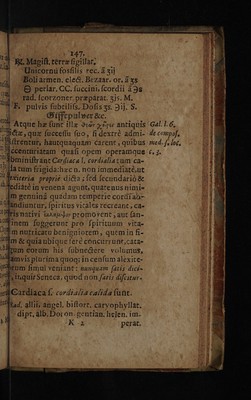 147.
℞. Magist. terræ sigillat.
Unicornu fossilis rec. ā ʒij
Boli armen. elect. Bezaar. or. ā ʒs
perlar. CC. succini. scordii ā
rad. scorzoner. præparat. ʒjs. M.
F. pulvis subtiliss. Dosis ʒs. S.
Giftpulver &c.
Atque hæ sunt illæ antiquis
dictæ, quæ successu suo, si dextrè admi-
nistrentur, hautquaquam carent, quibus
Gal. l. 6.
de compos.
med. s. loc.
c. 5.
recentiorum quasi open operamque
subministrant Cardiaca l. cordialia tum ca-
lida tum frigida: hæc n. non immediatè, ut
alexiteria propriè dicta, sed secundariò &
mediatè in venena agunt, quatenus nimi-
rum genuinâ quadam temperie cordi ab-
blandiuntur, spiritus vitales recreant, ca-
loris nativi promovent, aut san-
guinem suggerunt pro spirituum vita-
lium nutricatu benignissimum, quem in fi-
nem & quia ubique ferè concurrunt, cata-
logum eorum his subnectere volumus,
quamvis plurima quoq; in censum alexite-
riorum simul veniant: nunquam satis dici-
tur, inquit Seneca, quod non satis discitur.
Cardiaca s. cordialia calida sunt.
Rad. allii. angel. bistort. caryophyllat.
dipt. alb. Doron. gentian. helen. im-
K 2
perat.